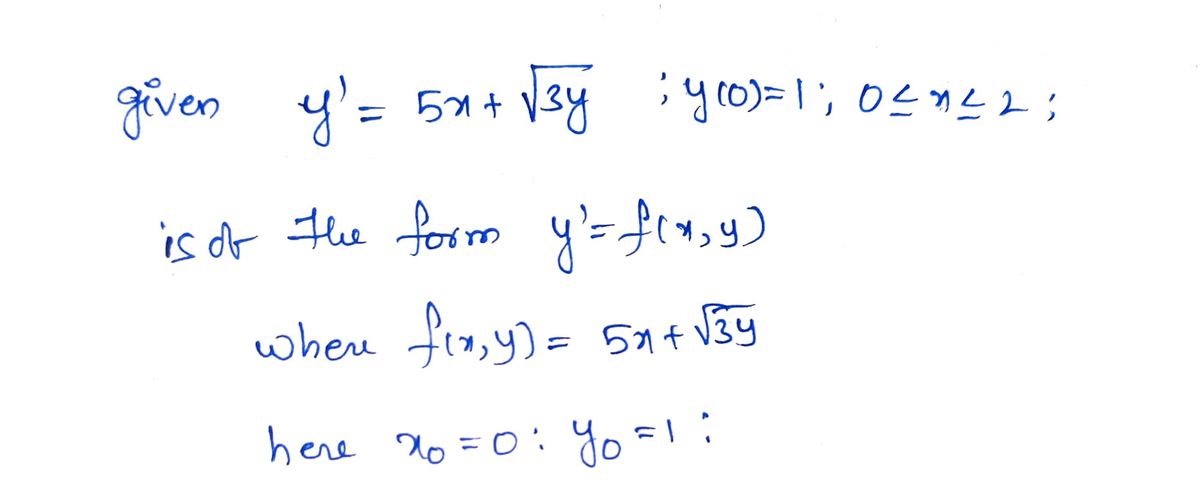 given y' = 5x + √3y ; y(0)=1 ; 0 ≤ x ≤ 2 ;
is of the form y' = f(x,y)
where f(x,y) = 5x + √3y
here x₀ = 0 : y₀ = 1 :